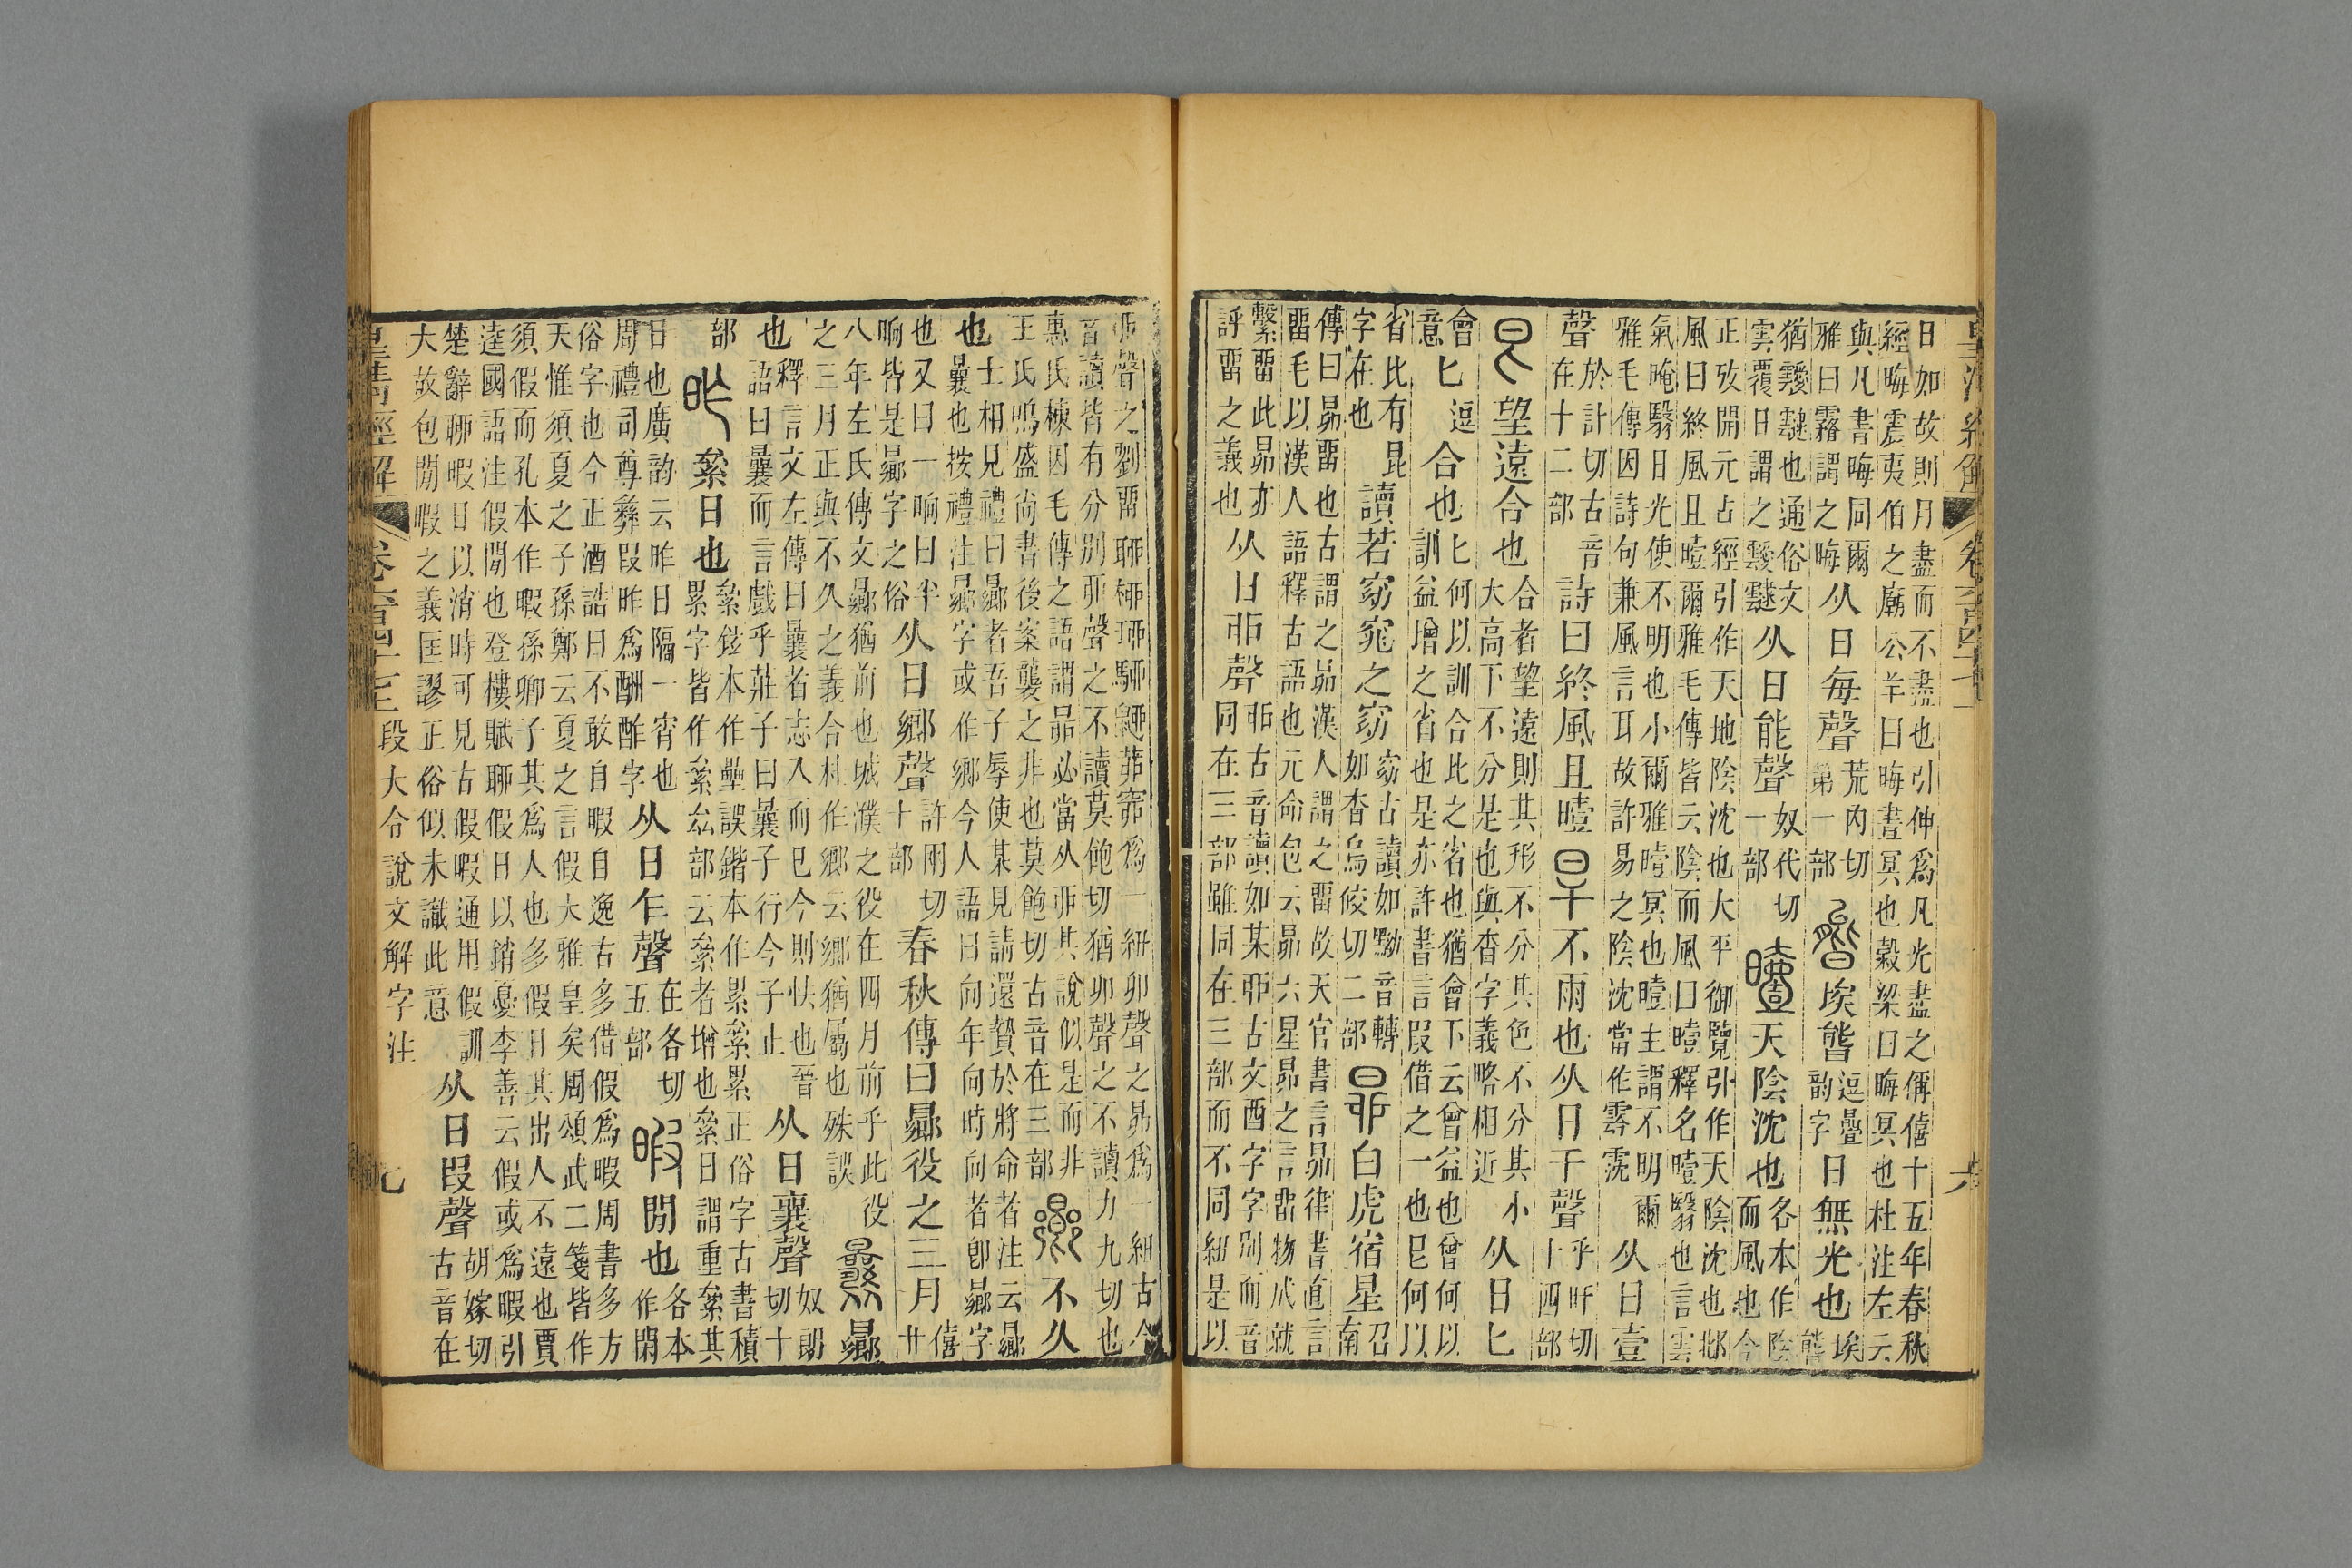 皇清經解
日如故則月盡而不盡也引伸爲凡光盡之偁僖十五年春秋
經晦震夷伯之廟公羊曰晦晝冥也穀梁曰晦冥也杜注左云
與凡書晦同爾
雅曰霧謂之晦
从日每聲
荒內切
第一部
㬗埃㬗
逗疊
韵字
日無光也
埃
㬗
猶靉靆也通俗文
雲覆日謂之靉靆
从日能聲
奴代切
一部
曀天陰沈也
各本作陰
而風也今
正攷開元占經引作天地陰沈也大平御覽引作天陰沈也邶
風曰終風且曀爾雅毛傳皆云陰而風曰曀釋名曀翳也言雲
氣晻翳日光使不明也小爾雅曀冥也曀主謂不明爾
雅毛傳因詩句兼風言耳故許易之陰沈當作霒霃
从日壹
聲
於計切古音
在十二部
詩曰終風且曀旱不雨也从日干聲
乎旰切
十四部
㫐望遠合也
合者望遠則其形不分其色不分其小
大高下不分是也與杳字義略相近
从日匕
會
意
匕
逗
合也
匕何以訓合比之省也猶會下云曾益也曾何以
訓益增之省也是亦許書言叚借之一也㫐何以
省比有昆
字在也
讀若窈窕之窈
窈古讀如黝音轉
如杳烏皎切二部
昴白虎宿星
召
南
傳曰昴畱也古謂之昴漢人謂之畱故天官書言昴律書直言
畱毛以漢人語釋古語也元命包云昴六星昴之言畱物成就
繫畱此昴亦
評畱之義也
从日丣聲
丣古音讀如某丣古文酉字字別而音
同在三部雖同在三部而不同紐是以
丣聲之劉畱聊桺珋駵䋷茆窌爲一紐卯聲之昴爲一紐古今
音讀皆有分別丣聲之不讀莫飽切猶卯聲之不讀力九切也
惠氏棟因毛傳之語謂昴必當从丣其說似是而非
王氏鳴盛尚書後案襲之非也莫飽切古音在三部
曏不久
也
士相見禮曰曏者吾子辱使某見請還贄於將命者注云曏
曩也按禮注曏字或作鄉今人語曰向年向時向者卽曏字
也又曰一晌曰半
晌皆是曏字之俗
从日鄉聲
許兩切
十部
春秋傳曰曏役之三月
僖
廿
八年左氏傳文曏猶前也城濮之役在四月前乎此役
之三月正與不久之義合杜作鄉云鄉猶屬也殊誤
曩曏
也
釋言文左傳曰曩者志入而已今則怯也晉
語曰曩而言戲乎莊子曰曩子行今子止
从日襄聲
奴朗
切十
部
昨絫日也
絫鉉本作壘誤鍇本作累絫累正俗字古書積
累字皆作絫厽部云絫者增也絫日謂重絫其
日也廣韵云昨日隔一宵也
周禮司尊彝叚昨爲酬酢字
从日乍聲
在各切
五部
暇閒也
各本
作閑
俗字也今正酒誥曰不敢自暇自逸古多借假爲暇周書多方
天惟須夏之子孫鄭云夏之言假大雅皇矣周頌武二箋皆作
須假而孔本作暇孫卿子其爲人也多假日其出人不遠也賈
逵國語注假閒也登樓賦聊假日以銷憂李善云假或爲暇引
楚辭聊暇日以消時可見古假暇通用假訓
大故包閒暇之義匡謬正俗似未識此意
从日叚聲
胡嫁切
古音在
皇清經解
段大令說文解字注